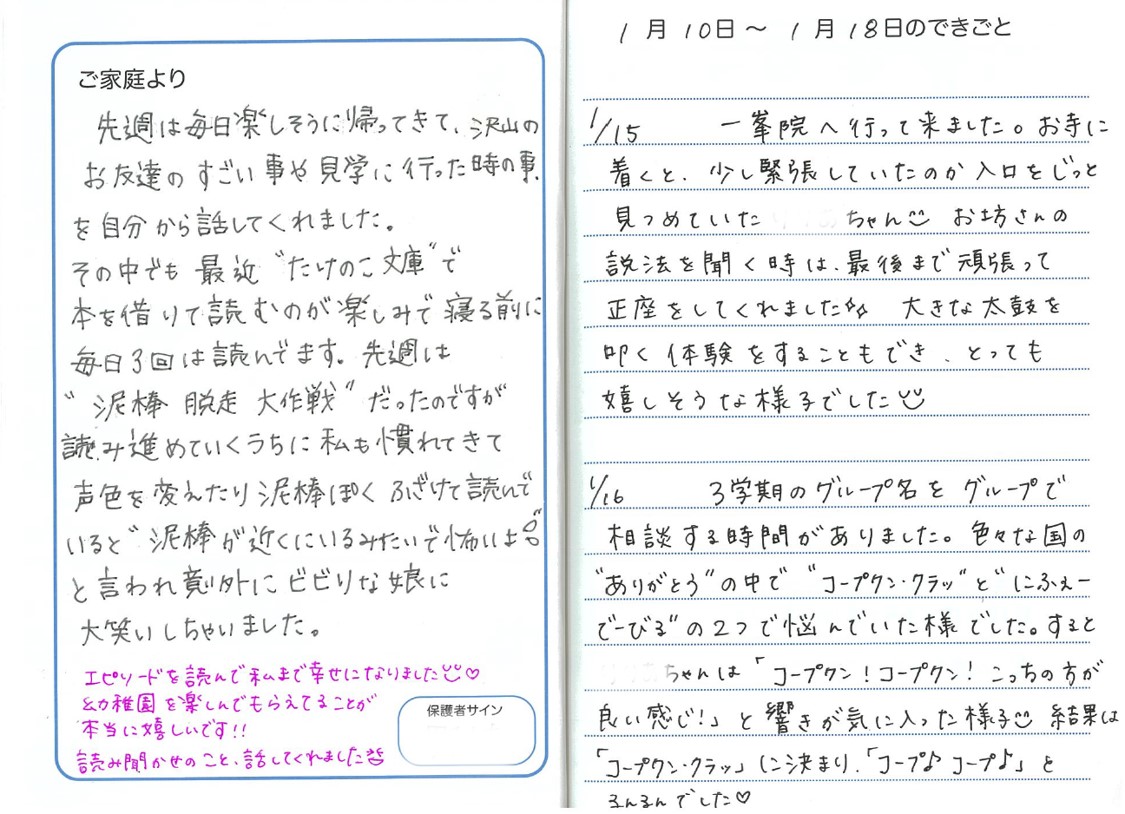 ご家庭より
先週は毎日楽しそうに帰ってきて、沢山の
お友達のすごい事や見学に行った時の事
を自分から話してくれました。
その中でも最近“たけのこ文庫”で
本を借りて読むのが楽しみで寝る前に
毎日3回は読んでます。先週は
“泥棒 脱走 大作戦”だったのですが
読み進めていくうちに私も慣れてきて
声色を変えたり泥棒ぽくふざけて読んで
いると“泥棒が近くにいるみたいで怖いよ”
と言われ意外にビビりな娘に
大笑いしちゃいました。
エピソードを読んで私まで幸せになりました♡
幼稚園を楽しんでもらえてることが
本当に嬉しいです!!
読み聞かせのこと、話してくれました
保護者サイン
1月10日~1月18日のできごと
1/15 一峯院へ行って来ました。お寺に
着くと、少し緊張していたのか入口をじっと
見つめていた ちゃん お坊さんの
説法を聞く時は、最後まで頑張って
正座をしてくれました 大きな太鼓を
叩く体験をすることもでき、とっても
嬉しそうな様子でした
1/16 3学期のグループ名をグループで
相談する時間がありました。色々な国の
“ありがとう”の中で“コープクン・クラッ”と“にふぇー
でーびる”の2つで悩んでいた様でした。すると
ちゃんは「コープクン!コープクン!こっちの方が
良い感じ!」と響きが気に入った様子 結果は
「コープクン・クラッ」に決まり、「コープ♪コープ♪」と
るんるんでした♡